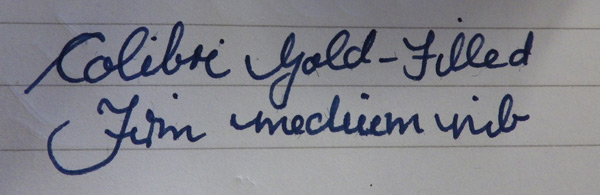 Colibri Gold-Filled
Firm medium nib